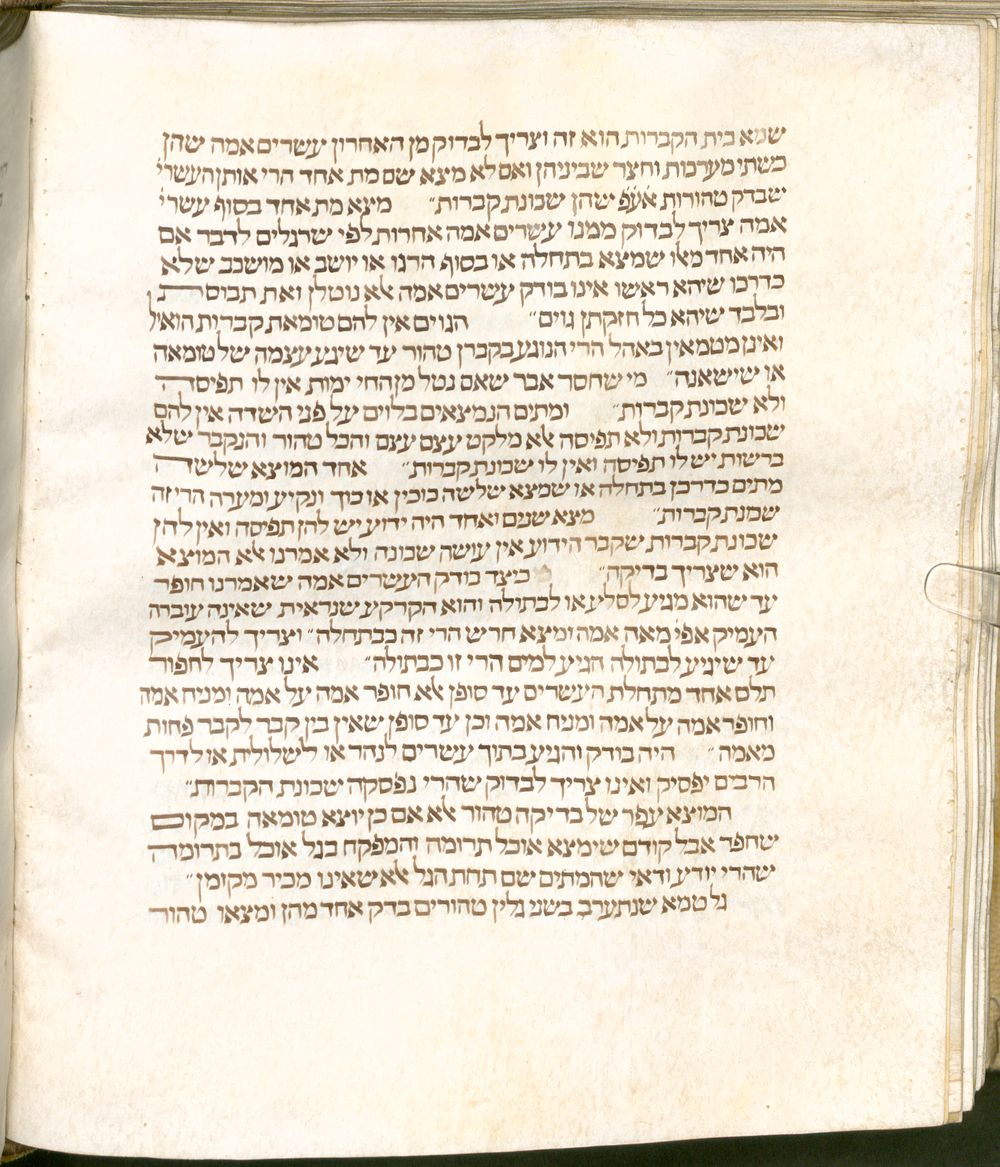 שמא בית הקברות הוא זה וצריך לבדוק מן האחרון עשרים אמה שהן
כשתי מערכות וחצר שביניהן ואם לא מצא שם מת אחד הרי אותן העשרי'
שבדק טהורות אע"פ שהן שכונת קברות" מצא מת אחד בסוף עשרי'
אמה צריך לבדוק ממנו עשרים אמה אחרות לפי שרגלים לדבר אם
היה אחד מאלו שמצא בתחלה או בסוף הרגו או יושב או מושכב שלא
כדרכו שיהא ראשו אינו בודק עשרים אמה אלא נוטלן ואת תבוסתן
ובלבד שיהא כל חזקתן גוים" הגוים אין להם טומאת קברות הואיל
ואינן מטמאין באהל הרי הנוגע בקברן טהור עד שיגע עצמה של טומאה
או שישאנה" מי שחסר אבר שאם נטל מן החי ימות אין לו תפיסה
ולא שכונת קברות" ומתים הנמצאים בלוים על פני השדה אין להם
שכונת קברות ולא תפיסה אלא מלקט עצם עצם והכל טהור והנקבר שלא
ברשות יש לו תפיסה ואין לו שכונת קברות" אחד המוצא שלשה
מתים כדרכן בתחלה או שמצא שלשה כוכין או כוך ונקיע ומערה הרי זה
שכונת קברות" מצא שנים ואחד היה ידוע יש להן תפיסה ואין להן
שכונת קברות שקבר הידוע אין עושה שכונה ולא אמרנו אלא המוצא
הוא שצריך בדיקה" כיצד בודק העשרים אמה שאמרנו חופר
עד שהוא מגיע לסלע או לבתולה והוא הקרקע שנראית שאינה עובדה
העמיק אפי' מאה אמה ומצא חרש הרי זה כבתחלה" וצריך להעמיק
עד שיגיע לבתולה הגיע למים הרי זו כבתולה" אינו צריך לחפור
תלם אחד מתחלת העשרים עד סופן אלא חופר אמה על אמה ומניח אמה
וחופר אמה על אמה ומניח אמה וכן עד סופן שאין בין קבר לקבר פחות
מאמה" היה בודק והגיע בתוך עשרים לנהר או לשלולית או לדרך
הרבים יפסיק ואינו צריך לבדוק שהרי נפסקה שכונת הקברות"
המוצא עפר של בדיקה טהור אלא אם כן יוצא טומאה במקום
שחפר אבל קודם שימצא אוכל תרומה והמפקח בגל אוכל בתרומה
שהרי יודע ודאי שהמתים שם תחת הגל אלא שאינו מכיר מקומן"
גל טמא שנתערב בשני גלין טהורים בדק אחד מהן ומצאו טהור